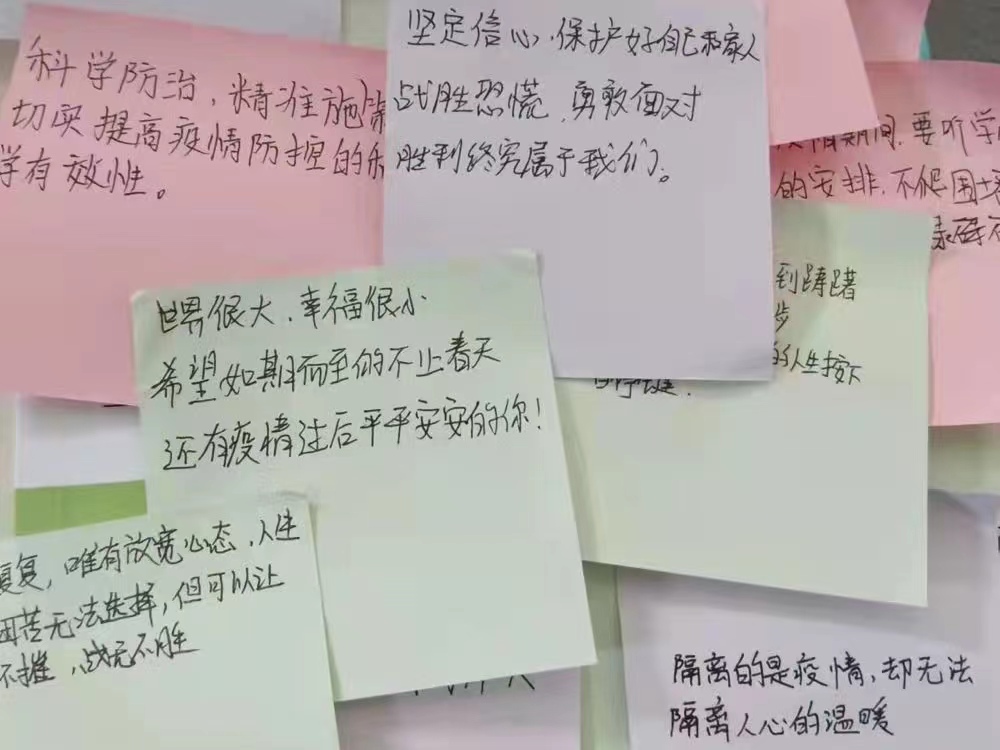 科学防治，精准施策
切实提高疫情防控的科
学有效性。
坚定信心，保护好自己和家人
战胜恐慌，勇敢面对
胜利终究属于我们。
情期间，要听学
的安排，不爬围墙
到踌躇
步
的人生按下
停键.
世界很大，幸福很小
希望如期而至的不止春天
还有疫情过后平平安安的你！
复，唯有放宽心态，人生
困苦无法选择，但可以让
不摧，战无不胜
隔离的是疫情，却无法
隔离人心的温暖